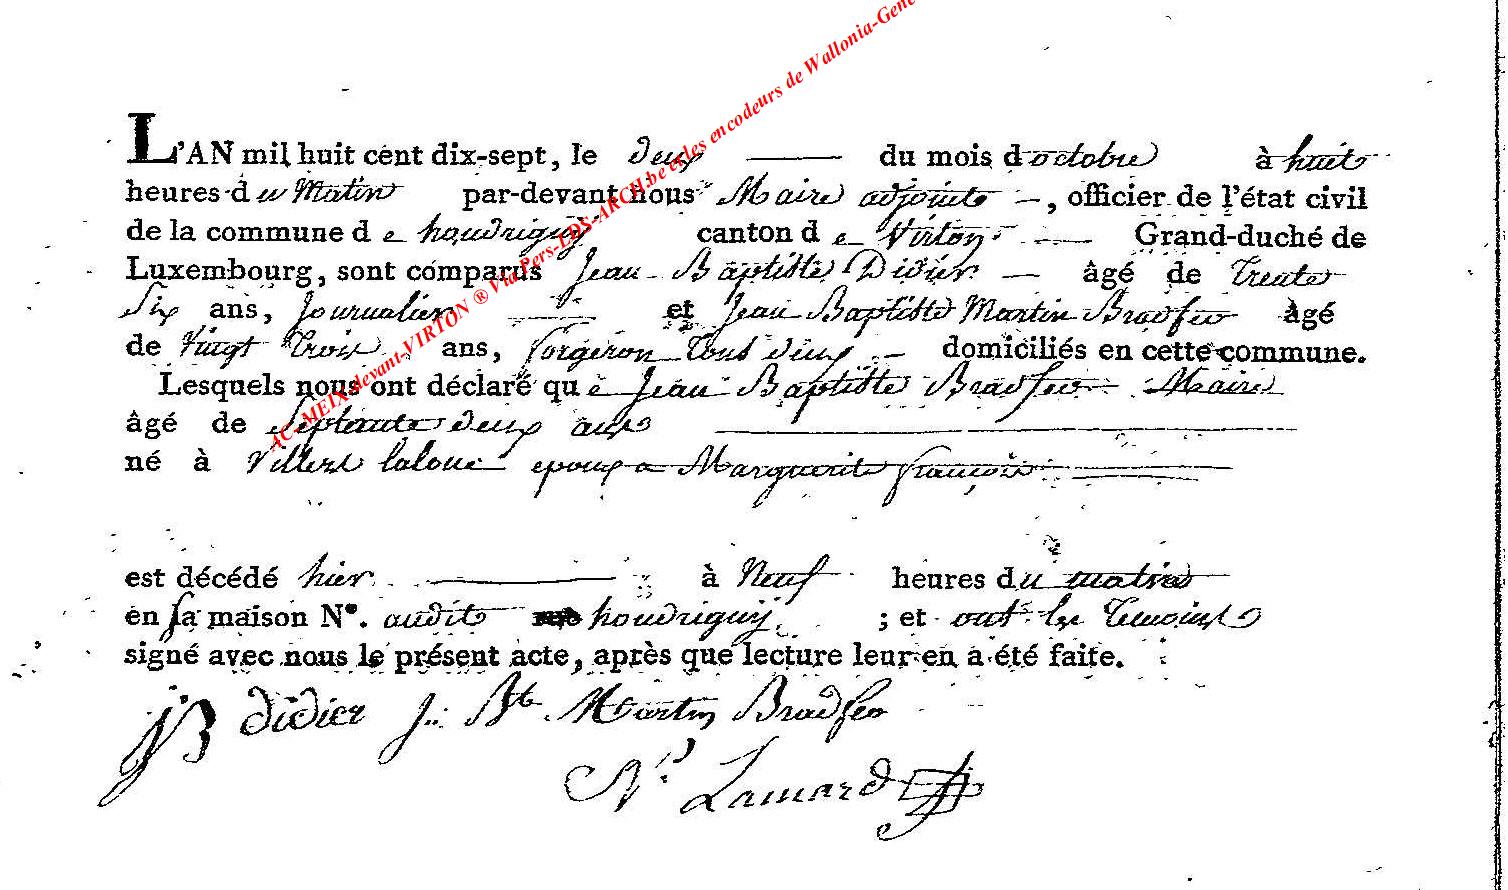 L'AN mil huit cent dix-sept, le deux du mois d'octobre à huit
heures du Matin par-devant nous Maire adjoint, officier de l'état civil
de la commune de houdrigny canton de Virton Grand-duché de
Luxembourg, sont comparus Jean Baptiste Didier âgé de Trente
Six ans, Journalier et Jean Baptiste Martin Bradfer âgé
de Vingt Trois ans, forgeron Tous deux domiciliés en cette commune.
Lesquels nous ont déclaré que Jean Baptiste Bradfer Maire
âgé de Septante deux ans
né à Villers laloue epoux a Marguerite françois
est décédé hier à Neuf heures du matin
en sa maison N°. audit houdrigny ; et ont les Temoins
signé avec nous le présent acte, après que lecture leur en a été faite.
JB didier J. Bte Martin Bradfer
Ns Lamard
AC-MEIX-devant-VIRTON ® Via Pers-EDS-ARCH.be et les encodeurs de Wallonia-Gene